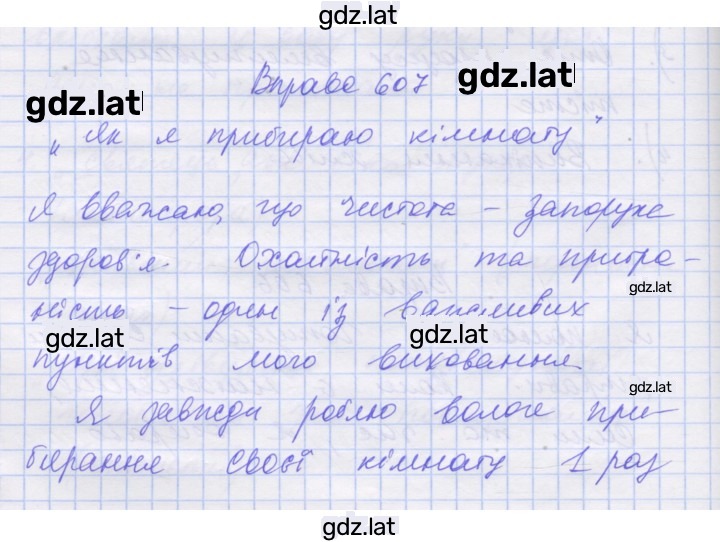 gdz.lat
Вправа 607
gdz.lat
gdz.lat
„Як я прибираю кімнату"
Я вважаю, що чистота – запорука
здоров'я. Охайність та прибра-
gdz.lat
ність – один із важливих
gdz.lat
gdz.lat
пунктів мого виховання.
gdz.lat
Я завжди роблю вологе при-
бирання своєї кімнату 1 раз
gdz.lat